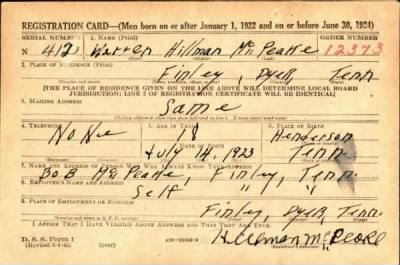 REGISTRATION CARD—(Men born on or after January 1, 1922 and on or before June 30, 1924)
SERIAL NUMBER 1. NAME (Print) ORDER NUMBER
N Warren Hillman McPeake 12373
2. PLACE OF RESIDENCE (Print)
Finley, Dyer, Tenn
[THE PLACE OF RESIDENCE GIVEN ON THE LINE ABOVE WILL DETERMINE LOCAL BOARD
JURISDICTION; LINE 2 OF REGISTRATION CERTIFICATE WILL BE IDENTICAL]
3. MAILING ADDRESS
Same
4. TELEPHONE 5. AGE IN YEARS 6. PLACE OF BIRTH
None 18 Henderson
DATE OF BIRTH
July 14, 1923 Tenn.
7. NAME AND ADDRESS OF PERSON WHO WILL ALWAYS KNOW YOUR ADDRESS
Bob McPeake, Finley, Tenn.
8. EMPLOYER'S NAME AND ADDRESS
Self " "
9. PLACE OF EMPLOYMENT OR BUSINESS
Finley, Dyer, Tenn.
I AFFIRM THAT I HAVE VERIFIED ABOVE ANSWERS AND THAT THEY ARE TRUE.
D. S. S. Form 1
(Revised 6-1-42) (over) McPeake